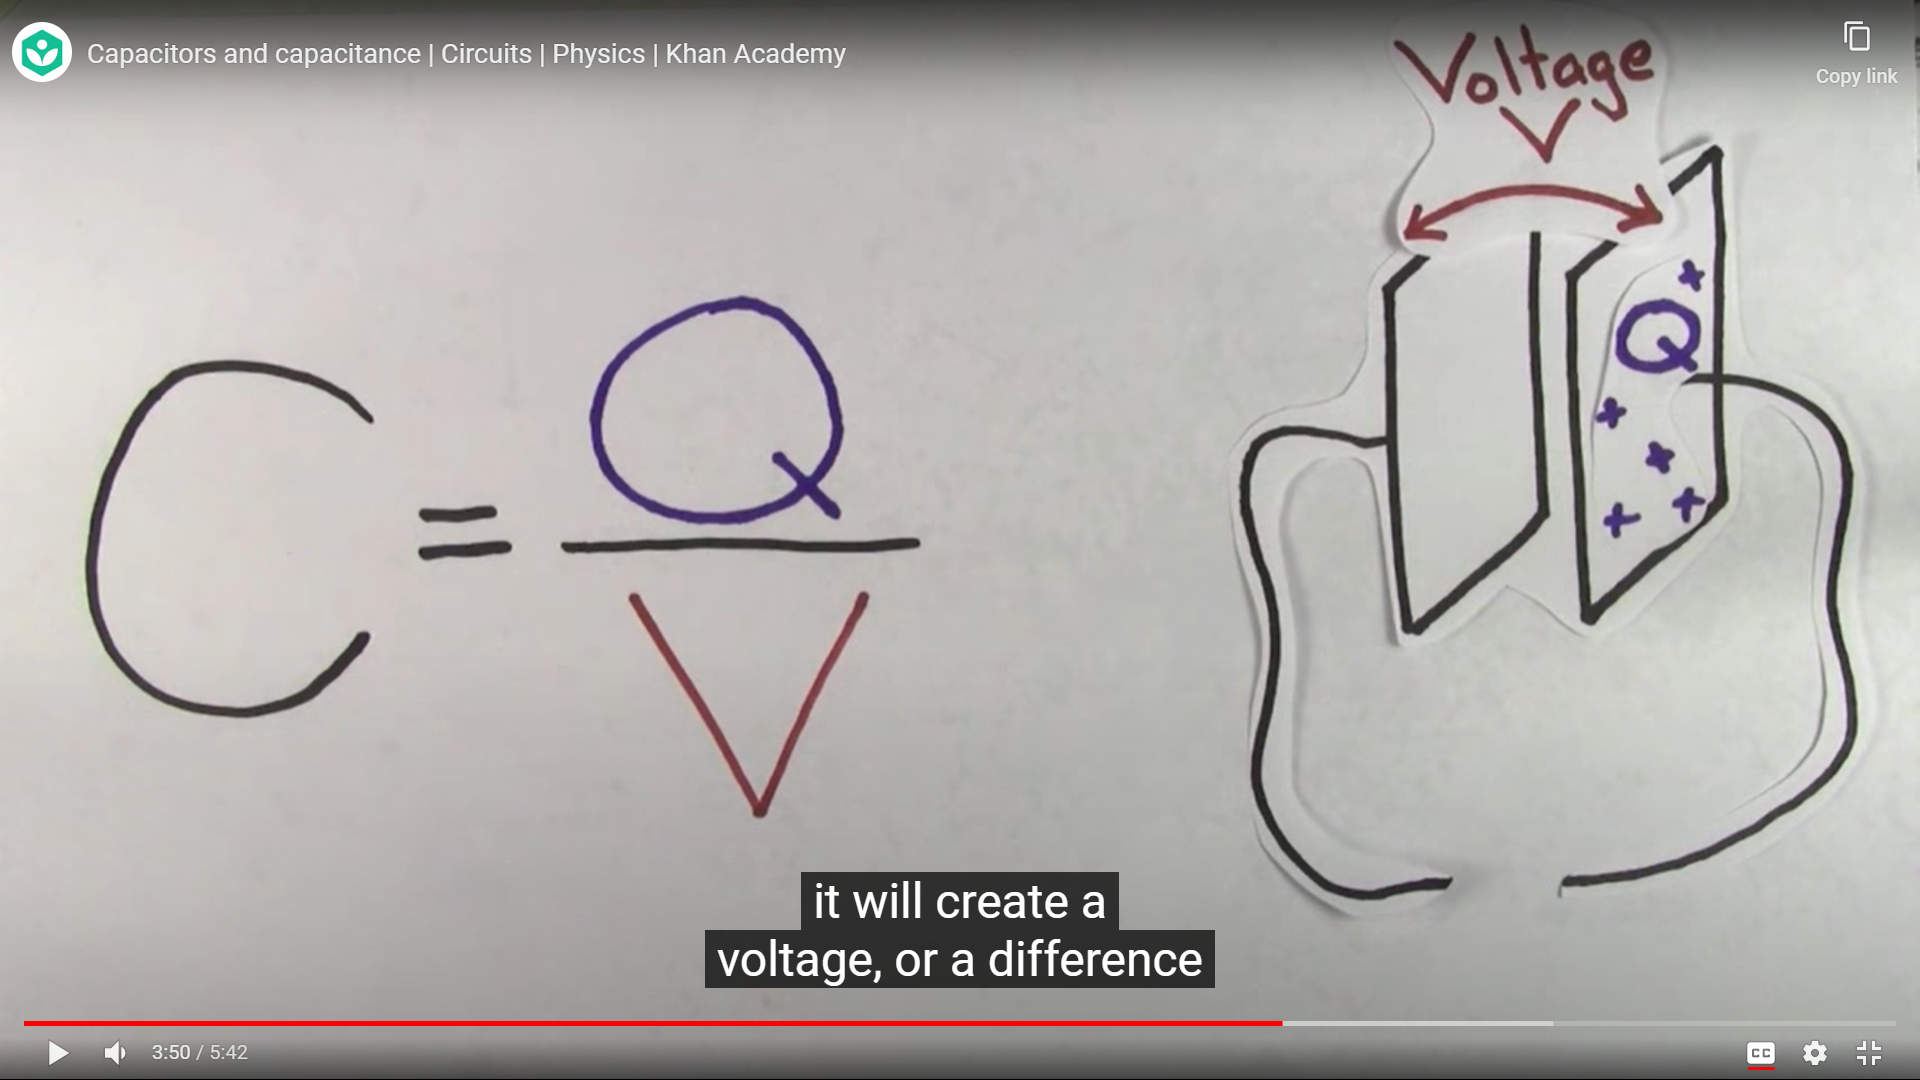 Capacitors and capacitance | Circuits | Physics | Khan Academy
Copy link
Voltage
V
Q
C = Q
V
it will create a
voltage, or a difference
3:50 / 5:42
CC